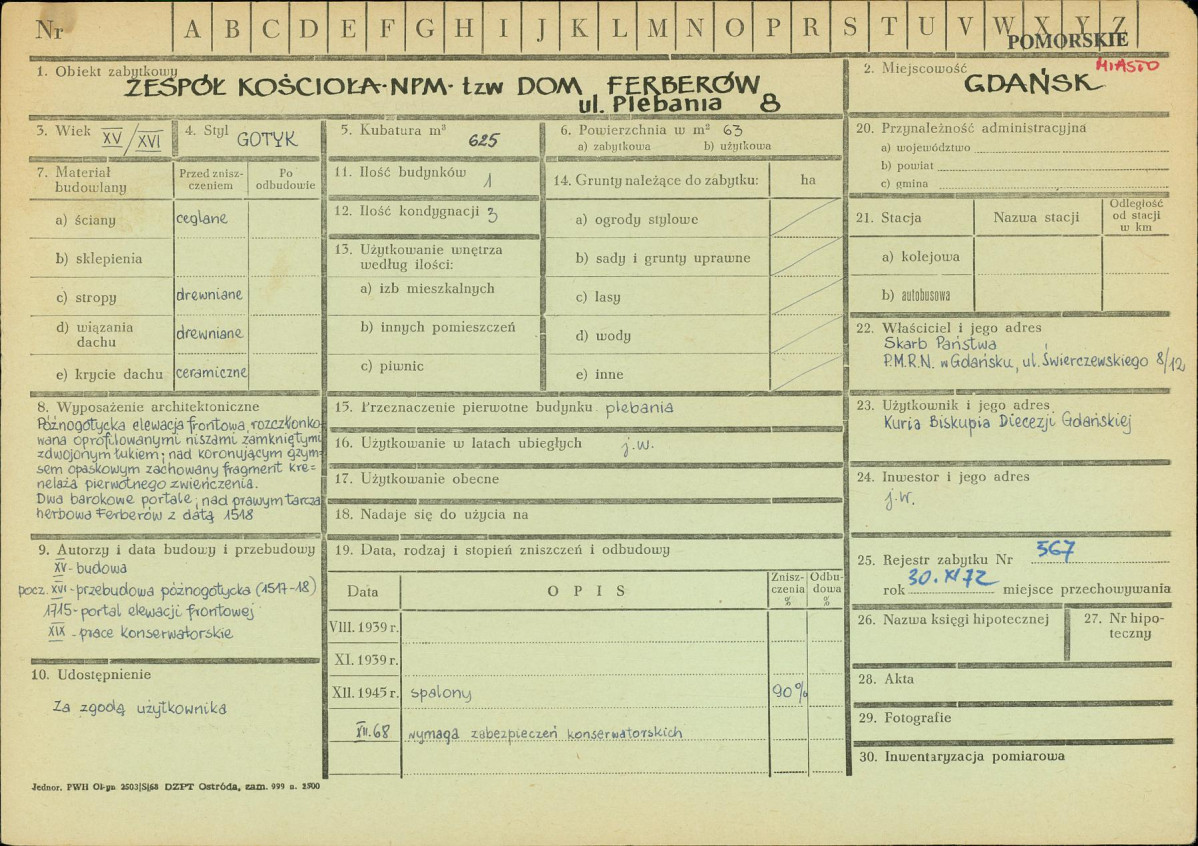 Nr A B C D E F G H I J K L M N O P R S T U V W X Y Z
POMORSKIE
1. Obiekt zabytkowy
ZESPÓŁ KOŚCIOŁA·NPM· tzw DOM FERBERÓW
ul. Plebania 8
2. Miejscowość
MIASTO
GDAŃSK
3. Wiek XV/XVI
4. Styl GOTYK
5. Kubatura m³ 625
6. Powierzchnia w m² 63
a) zabytkowa b) użytkowa
7. Materiał budowlany
Przed zniszczeniem
Po odbudowie
a) ściany ceglane
b) sklepienia
c) stropy drewniane
d) wiązania dachu drewniane
e) krycie dachu ceramiczne
8. Wyposażenie architektoniczne
Późnogotycka elewacja frontowa, rozczłonko-
wana oprofilowanymi niszami zamkniętymi
zdwojonym łukiem; nad koronującym gzym-
sem opaskowym zachowany fragment kre=
nelaża pierwotnego zwieńczenia.
Dwa barokowe portale; nad prawym tarcza
herbowa Ferberów z datą 1518
9. Autorzy i data budowy i przebudowy
XV - budowa
pocz. XVI - przebudowa późnogotycka (1517-18)
1715 - portal elewacji frontowej
XIX - prace konserwatorskie
10. Udostępnienie
Za zgodą użytkownika
11. Ilość budynków 1
12. Ilość kondygnacji 3
13. Użytkowanie wnętrza
według ilości:
a) izb mieszkalnych
b) innych pomieszczeń
c) piwnic
14. Grunty należące do zabytku: ha
a) ogrody stylowe
b) sady i grunty uprawne
c) lasy
d) wody
e) inne
15. Przeznaczenie pierwotne budynku plebania
16. Użytkowanie w latach ubiegłych j.w.
17. Użytkowanie obecne
18. Nadaje się do użycia na
19. Data, rodzaj i stopień zniszczeń i odbudowy
Data
OPIS
Zniszczenia %
Odbudowa %
VIII. 1939 r.
XI. 1939 r.
XII. 1945 r. spalony 90%
XII.68 wymaga zabezpieczeń konserwatorskich
20. Przynależność administracyjna
a) województwo
b) powiat
c) gmina
21. Stacja
Nazwa stacji
Odległość od stacji w km
a) kolejowa
b) autobusowa
22. Właściciel i jego adres
Skarb Państwa
P.M.R.N. w Gdańsku, ul. Świerczewskiego 8/12
23. Użytkownik i jego adres
Kuria Biskupia Diecezji Gdańskiej
24. Inwestor i jego adres
j.w.
25. Rejestr zabytku Nr 567
rok 30.XI 72 miejsce przechowywania
26. Nazwa księgi hipotecznej
27. Nr hipo-
teczny
28. Akta
29. Fotografie
30. Inwentaryzacja pomiarowa
Jednor. PWH Ol-yn 2503|S|68 DZPT Ostróda, zam. 999 n. 2500